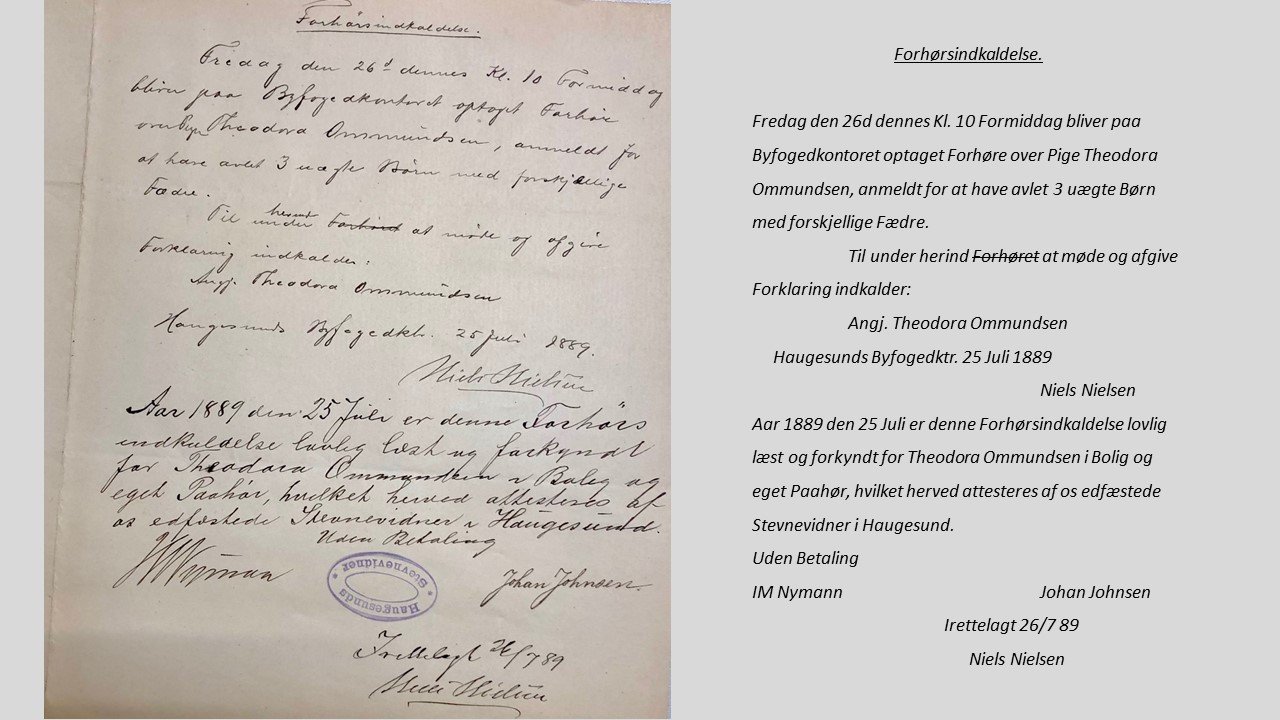 Forhørsindkaldelse.
Fredag den 26d dennes Kl. 10 Formiddag
bliver paa Byfogedkontoret optaget Forhør
over Pige Theodora Ommundsen, anmeldt for
at have avlet 3 uægte Børn med forskjællige
Fædre.
Til under herind Forhøret at møde og afgive
Forklaring indkalder:
Angj. Theodora Ommundsen
Haugesunds Byfogedktr. 25 Juli 1889.
Niels Nielsen
Aar 1889 den 25 Juli er denne Forhørs
indkaldelse lovlig læst og forkyndt
for Theodora Ommundsen i Bolig og
eget Paahør, hvilket herved attesteres af
os edfæstede Stevnevidner i Haugesund.
Uden Betaling
IM Nyman
Haugesunds
* Stevnevidner *
Johan Johnsen.
Irettelagt 26/7 89
Niels Nielsen
Forhørsindkaldelse.
Fredag den 26d dennes Kl. 10 Formiddag bliver paa
Byfogedkontoret optaget Forhøre over Pige Theodora
Ommundsen, anmeldt for at have avlet 3 uægte Børn
med forskjellige Fædre.
Til under herind Forhøret at møde og afgive
Forklaring indkalder:
Angj. Theodora Ommundsen
Haugesunds Byfogedktr. 25 Juli 1889
Niels Nielsen
Aar 1889 den 25 Juli er denne Forhørsindkaldelse lovlig
læst og forkyndt for Theodora Ommundsen i Bolig og
eget Paahør, hvilket herved attesteres af os edfæstede
Stevnevidner i Haugesund.
Uden Betaling
IM Nymann Johan Johnsen
Irettelagt 26/7 89
Niels Nielsen